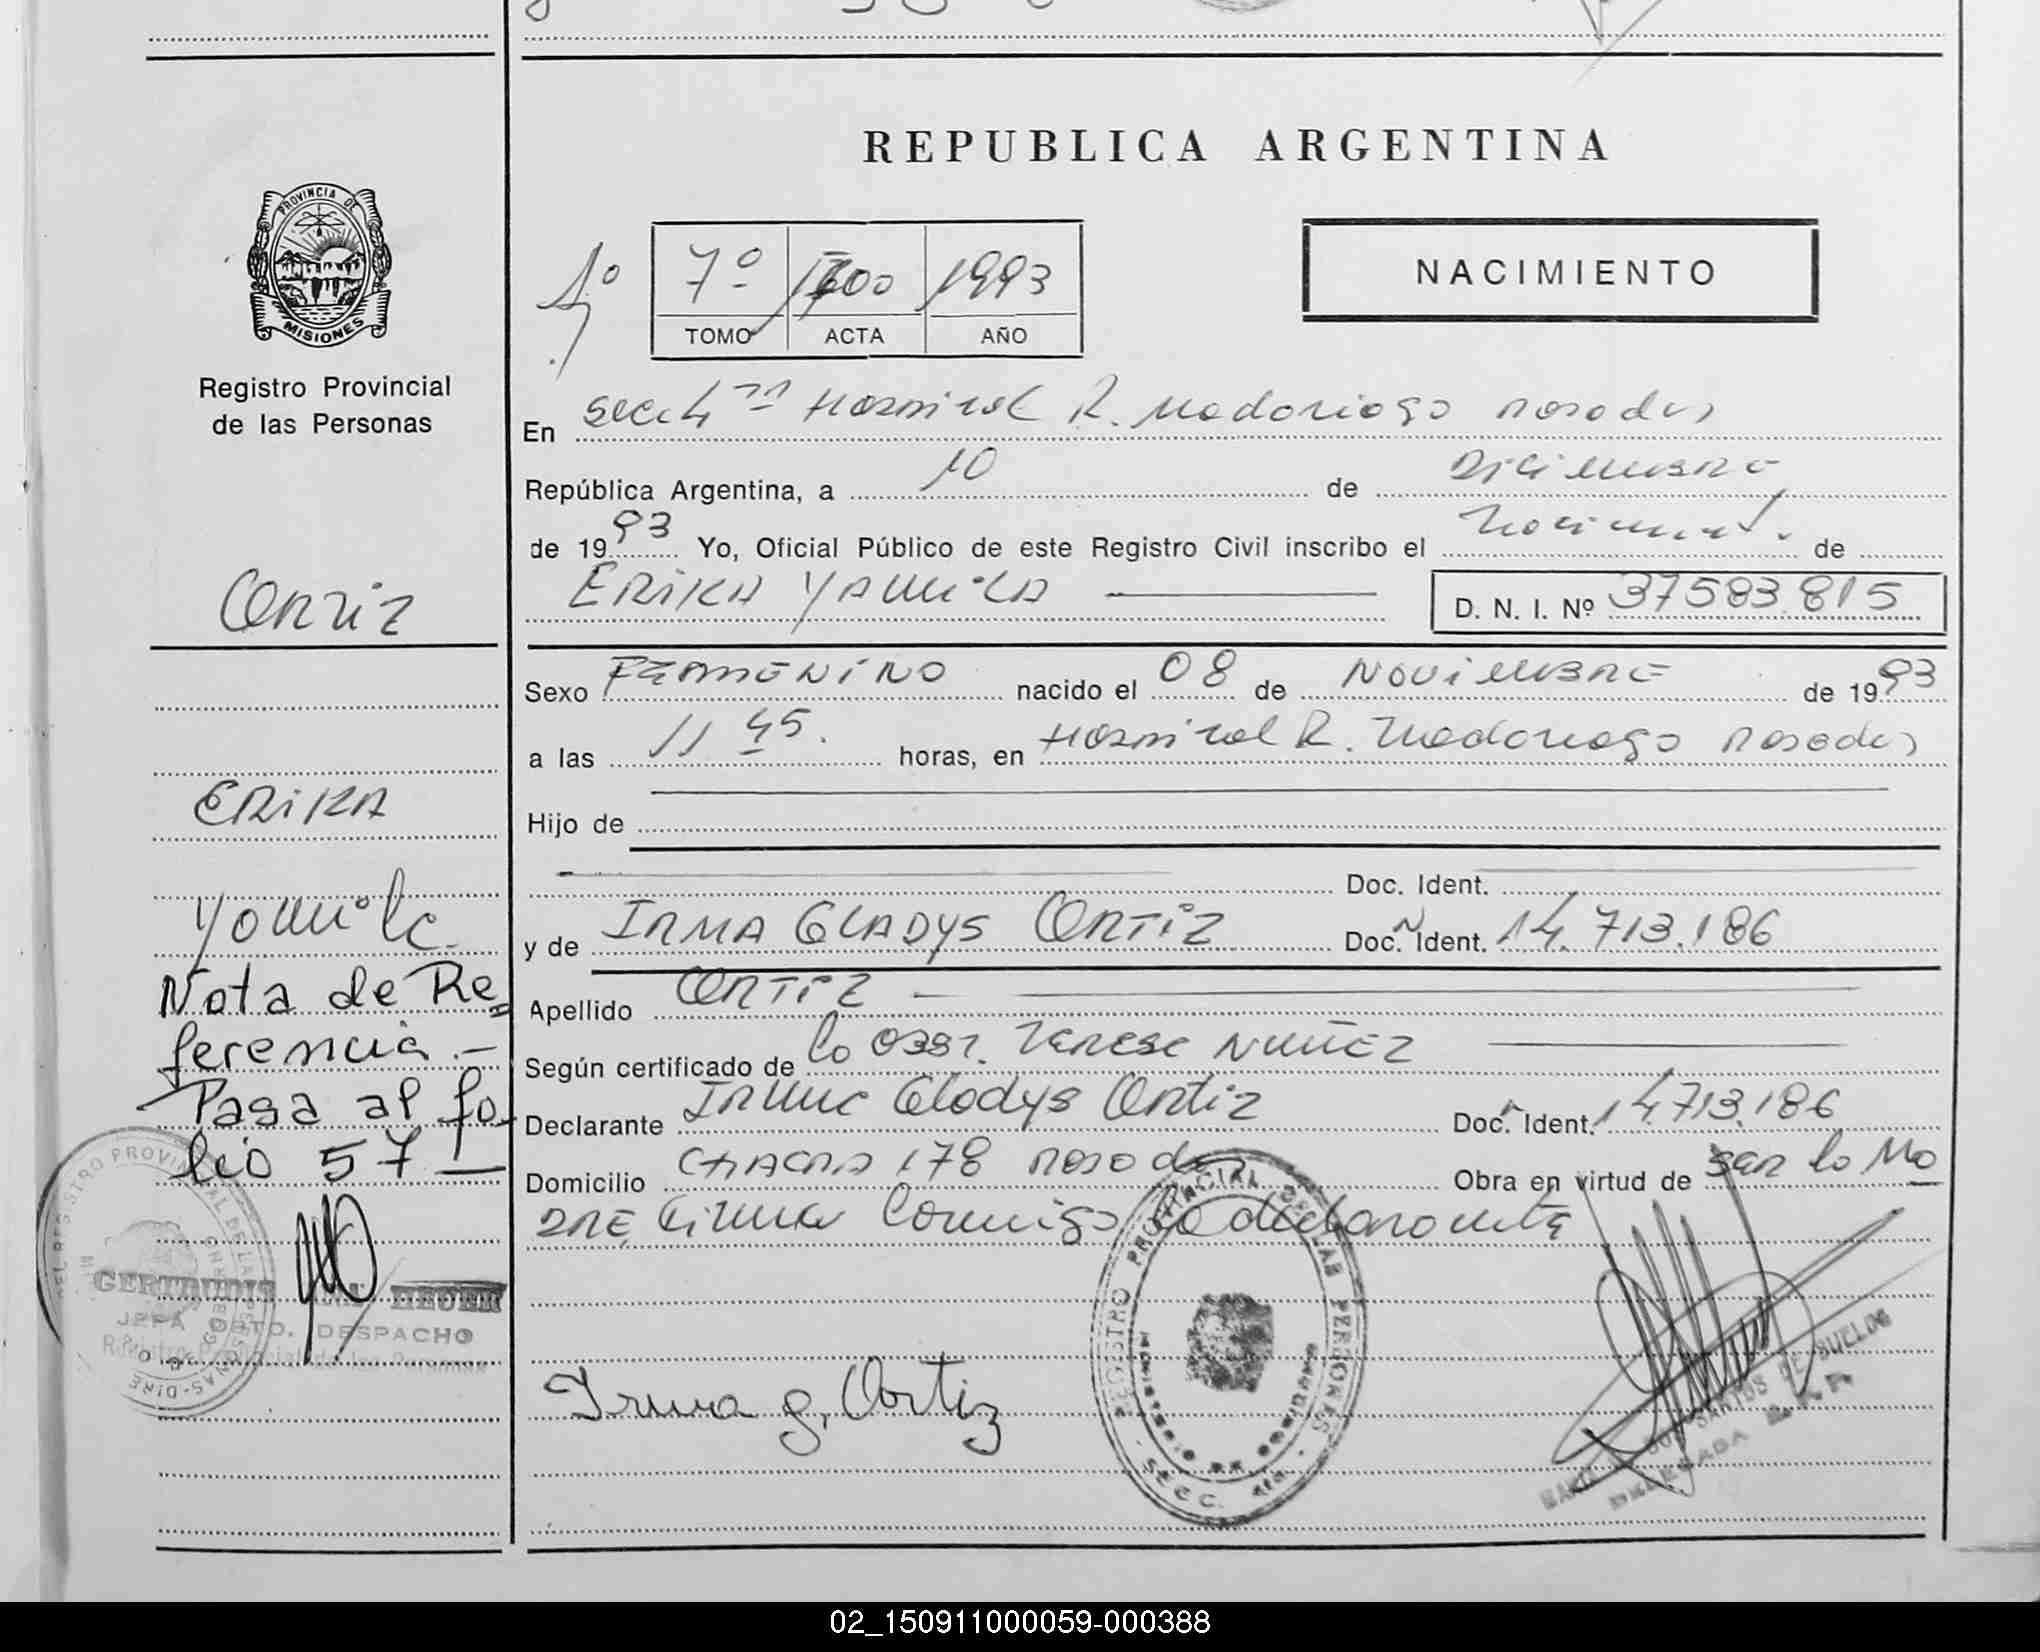 REPUBLICA ARGENTINA
PROVINCIA DE
MISIONES
Registro Provincial
de las Personas
1º
7º 1993
TOMO ACTA AÑO
NACIMIENTO
En Secc 4ta Hospital R. Madariaga Posadas
República Argentina, a 10 de Diciembre
de 1993 Yo, Oficial Público de este Registro Civil inscribo el Nacimiento de
ERIKA YAMILA D. N. I. Nº 37583.815
Ortiz
ERIKA
Yamila
Nota de Re=
ferencia.-
Pasa al fo-
lio 57
GERTRUDIS HEUER
JEFA DETO. DESPACHO
Registro Provincial de las Personas
Sexo FEMENINO nacido el 08 de NOVIEMBRE de 1993
a las 11 45. horas, en Hospital R. Madariaga Posadas
Hijo de
Doc. Ident.
y de IRMA GLADYS ORTIZ Doc. Ident. 14.713.186
Apellido ORTIZ
Según certificado de la Obst. Teresa NUÑEZ
Declarante Irma Gladys Ortiz Doc. Ident. 14.713.186
Domicilio CHACRA 178 Posadas Obra en virtud de ser la MA
DRE, Firma Conmigo la declarante
Irma G. Ortiz
REGISTRO PROVINCIAL DE LAS PERSONAS
SECC. 4ta.
DOS SANTOS DE
DELEGADA
02_150911000059-000388